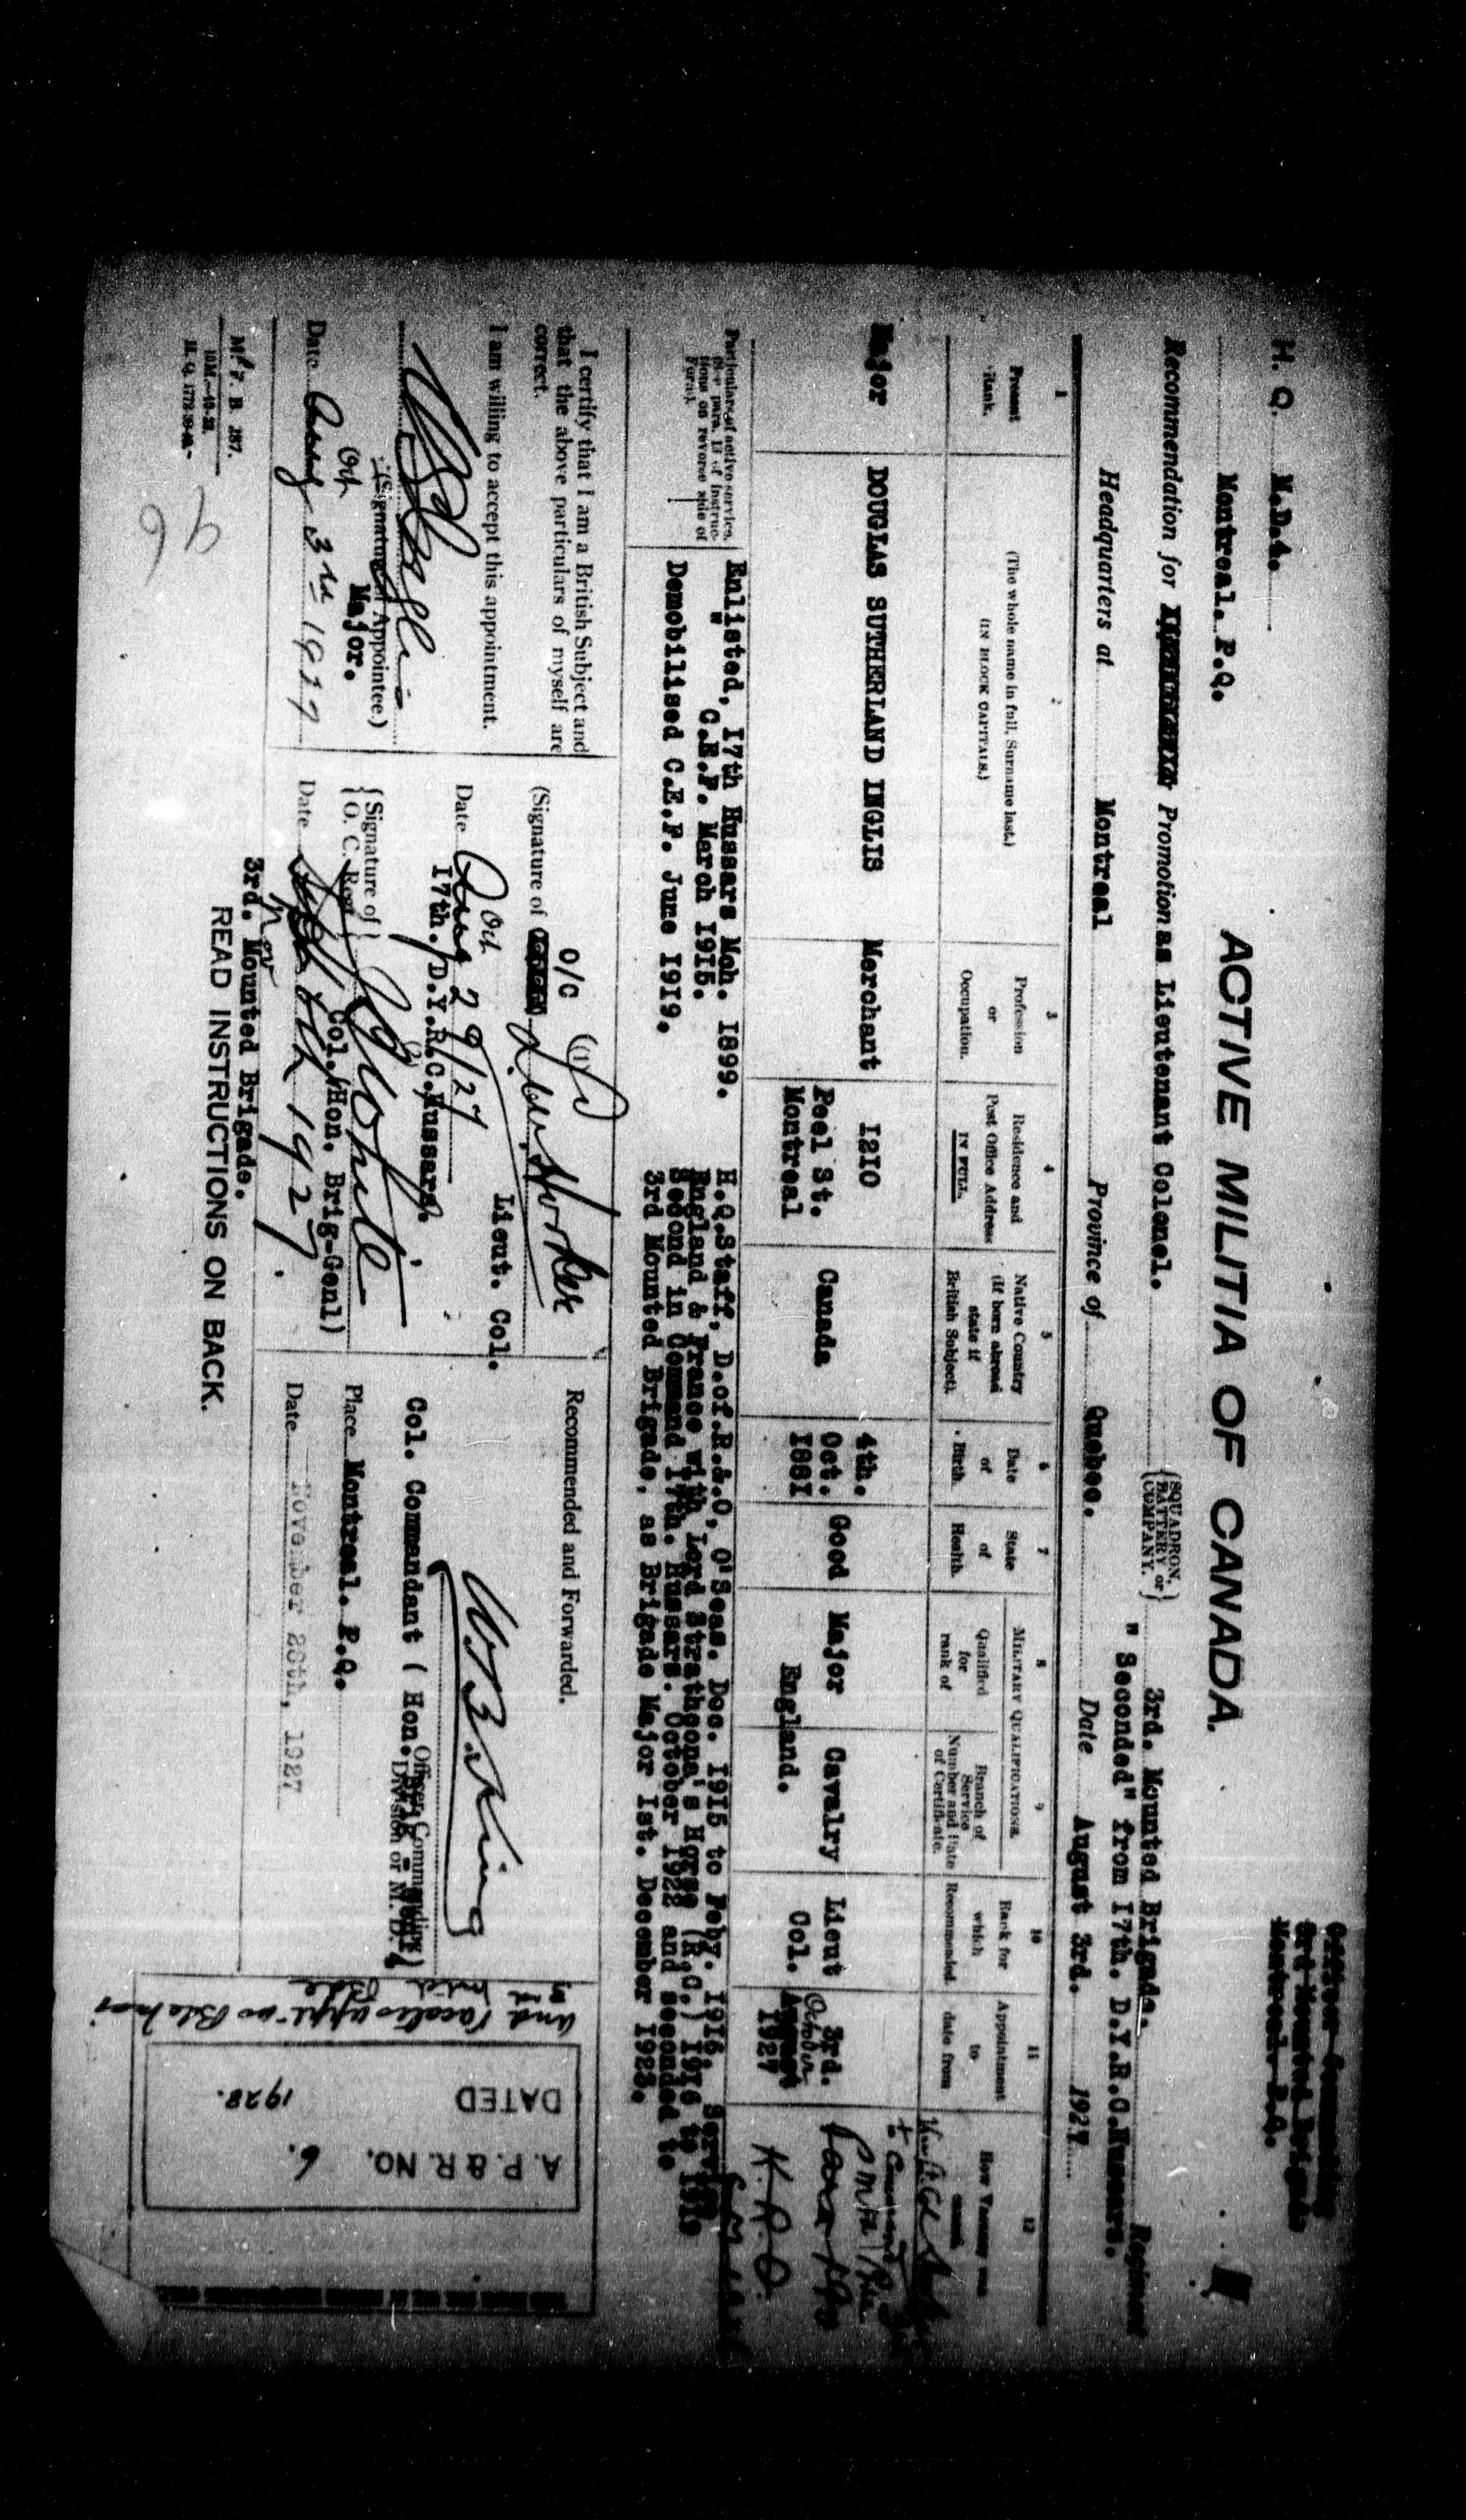 H. Q. M.D.4.
Montreal. P.Q.
ACTIVE MILITIA OF CANADA.
Officer Commanding
3rd Mounted Brigade
Montreal. P.Q.
Recommendation for Promotion as Lieutenant Colonel. {SQUADRON, BATTERY or COMPANY.} 3rd. Mounted Brigade. Regiment
" Seconded" from 17th. D.Y.R.C.Hussars.
Headquarters at Montreal Province of Quebec. Date August 3rd. 1927
1
Present Rank.
(The whole name in full, Surname last.)
(IN BLOCK CAPITALS.)
3
Profession or Occupation.
4
Residence and Post Office Address IN FULL.
5
Native Country (If born abroad state if British Subject).
6
Date of Birth.
7
State of Health.
MILITARY QUALIFICATIONS.
8
Qualified for rank of
9
Branch of Service Number and Date of Certificate.
10
Rank for which Recommended.
11
Appointment to date from
12
How Vacancy was caused
Major
DOUGLAS SUTHERLAND INGLIS
Merchant
1210 Peel St. Montreal
Canada
4th. Oct. 1881
Good
Major England.
Cavalry
Lieut Col.
3rd. October August 1927
K.R.O.
Particulars of active service. (See para. 13 of Instructions on reverse side of Form).
Enlisted, 17th Hussars Moh. 1899.
" C.E.F. March 1915.
Demobilised C.E.F. June 1919.
H.Q.Staff, D.of.R.&.O, O'Seas. Dec. 1915 to Feby. 1916. Served
England & France with Lord Strathcona's Horse (R.C.) 1916 to 1919
Second in Command 17th. Hussars. October 1922 and seconded to
3rd Mounted Brigade, as Brigade Major 1st. December 1923.
I certify that I am a British Subject and
that the above particulars of myself are
correct.
I am willing to accept this appointment.
(Signature of Appointee)
Major.
Oct
Date Aug 3rd 1927
O/C
(Signature of
(1)
Lieut. Col.
Oct
Date Aug 29/27
17th. D.Y.R.C.Hussars.
{Signature of O. C. Regt.}
(2)
Col. (Hon. Brig-Genl)
Date 1927.
Nov
3rd. Mounted Brigade.
Recommended and Forwarded.
W B M King
Col. Commandant ( Hon. Brig - Genl)
Officer Commanding
Division or M.D. 4
Place Montreal. P.Q.
Date November 28th, 1927
and vacates appt. as Bde Major
3rd Mtd Bde
A. P. & R. NO. 6.
DATED 1928.
READ INSTRUCTIONS ON BACK.
M. F. B. 287.
10M.-10-22.
H. Q. 1772-39-42-
96